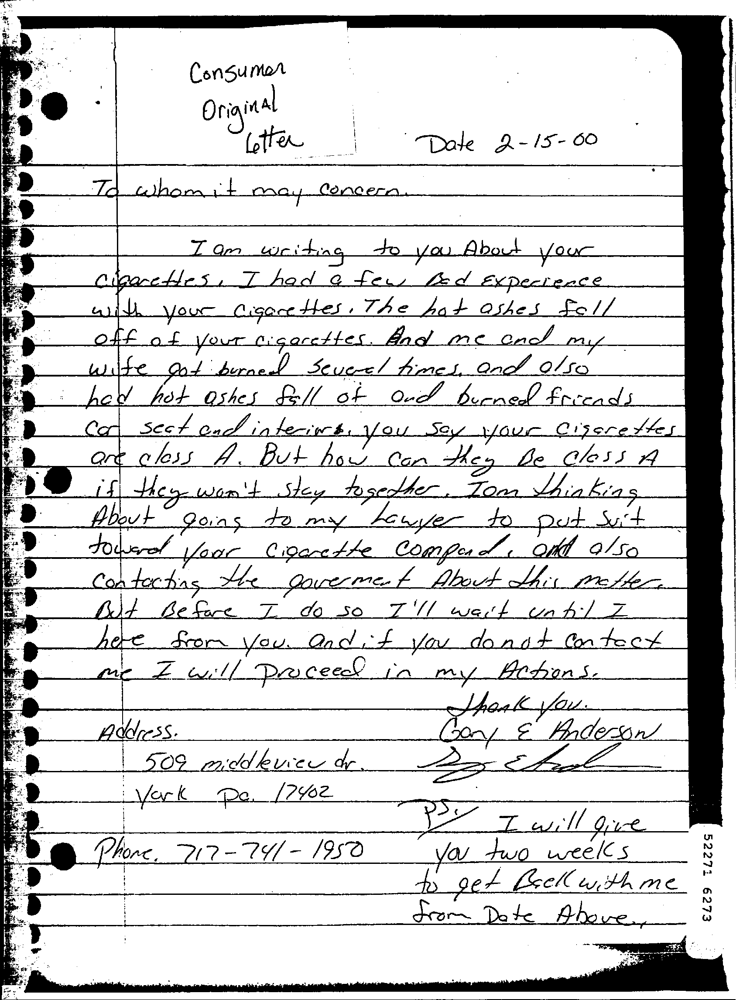 Consumer
Original
Letter
Date 2-15-00
To whom it may concern.
I am writing to you About your
cigarettes. I had a few Bad Experience
with your cigarettes. The hot ashes fall
off of your cigarettes. And me and my
wife got burned several times, and also
had hot ashes fall of and burned friends
car seat and interiors. you say your cigarettes
are class A. But how can they Be class A
if they won't stay together. I am thinking
About going to my Lawyer to put suit
toward your cigarette compand, and also
contacting the goverment About this matter.
But Before I do so I'll wait until I
here from you. and if you do not contact
me I will proceed in my Actions.
Thank you.
Address.
Gary E Anderson
509 middleview dr.
York Pa. 17402
Phone. 717-741-1950
P.S. I will give
you two weeks
to get Back with me
from Date Above.
52271 6273